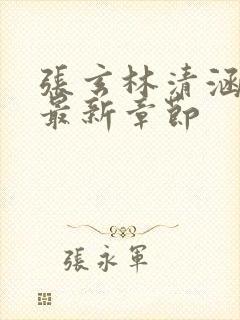 張玄林清涵
最新章節
張永軍